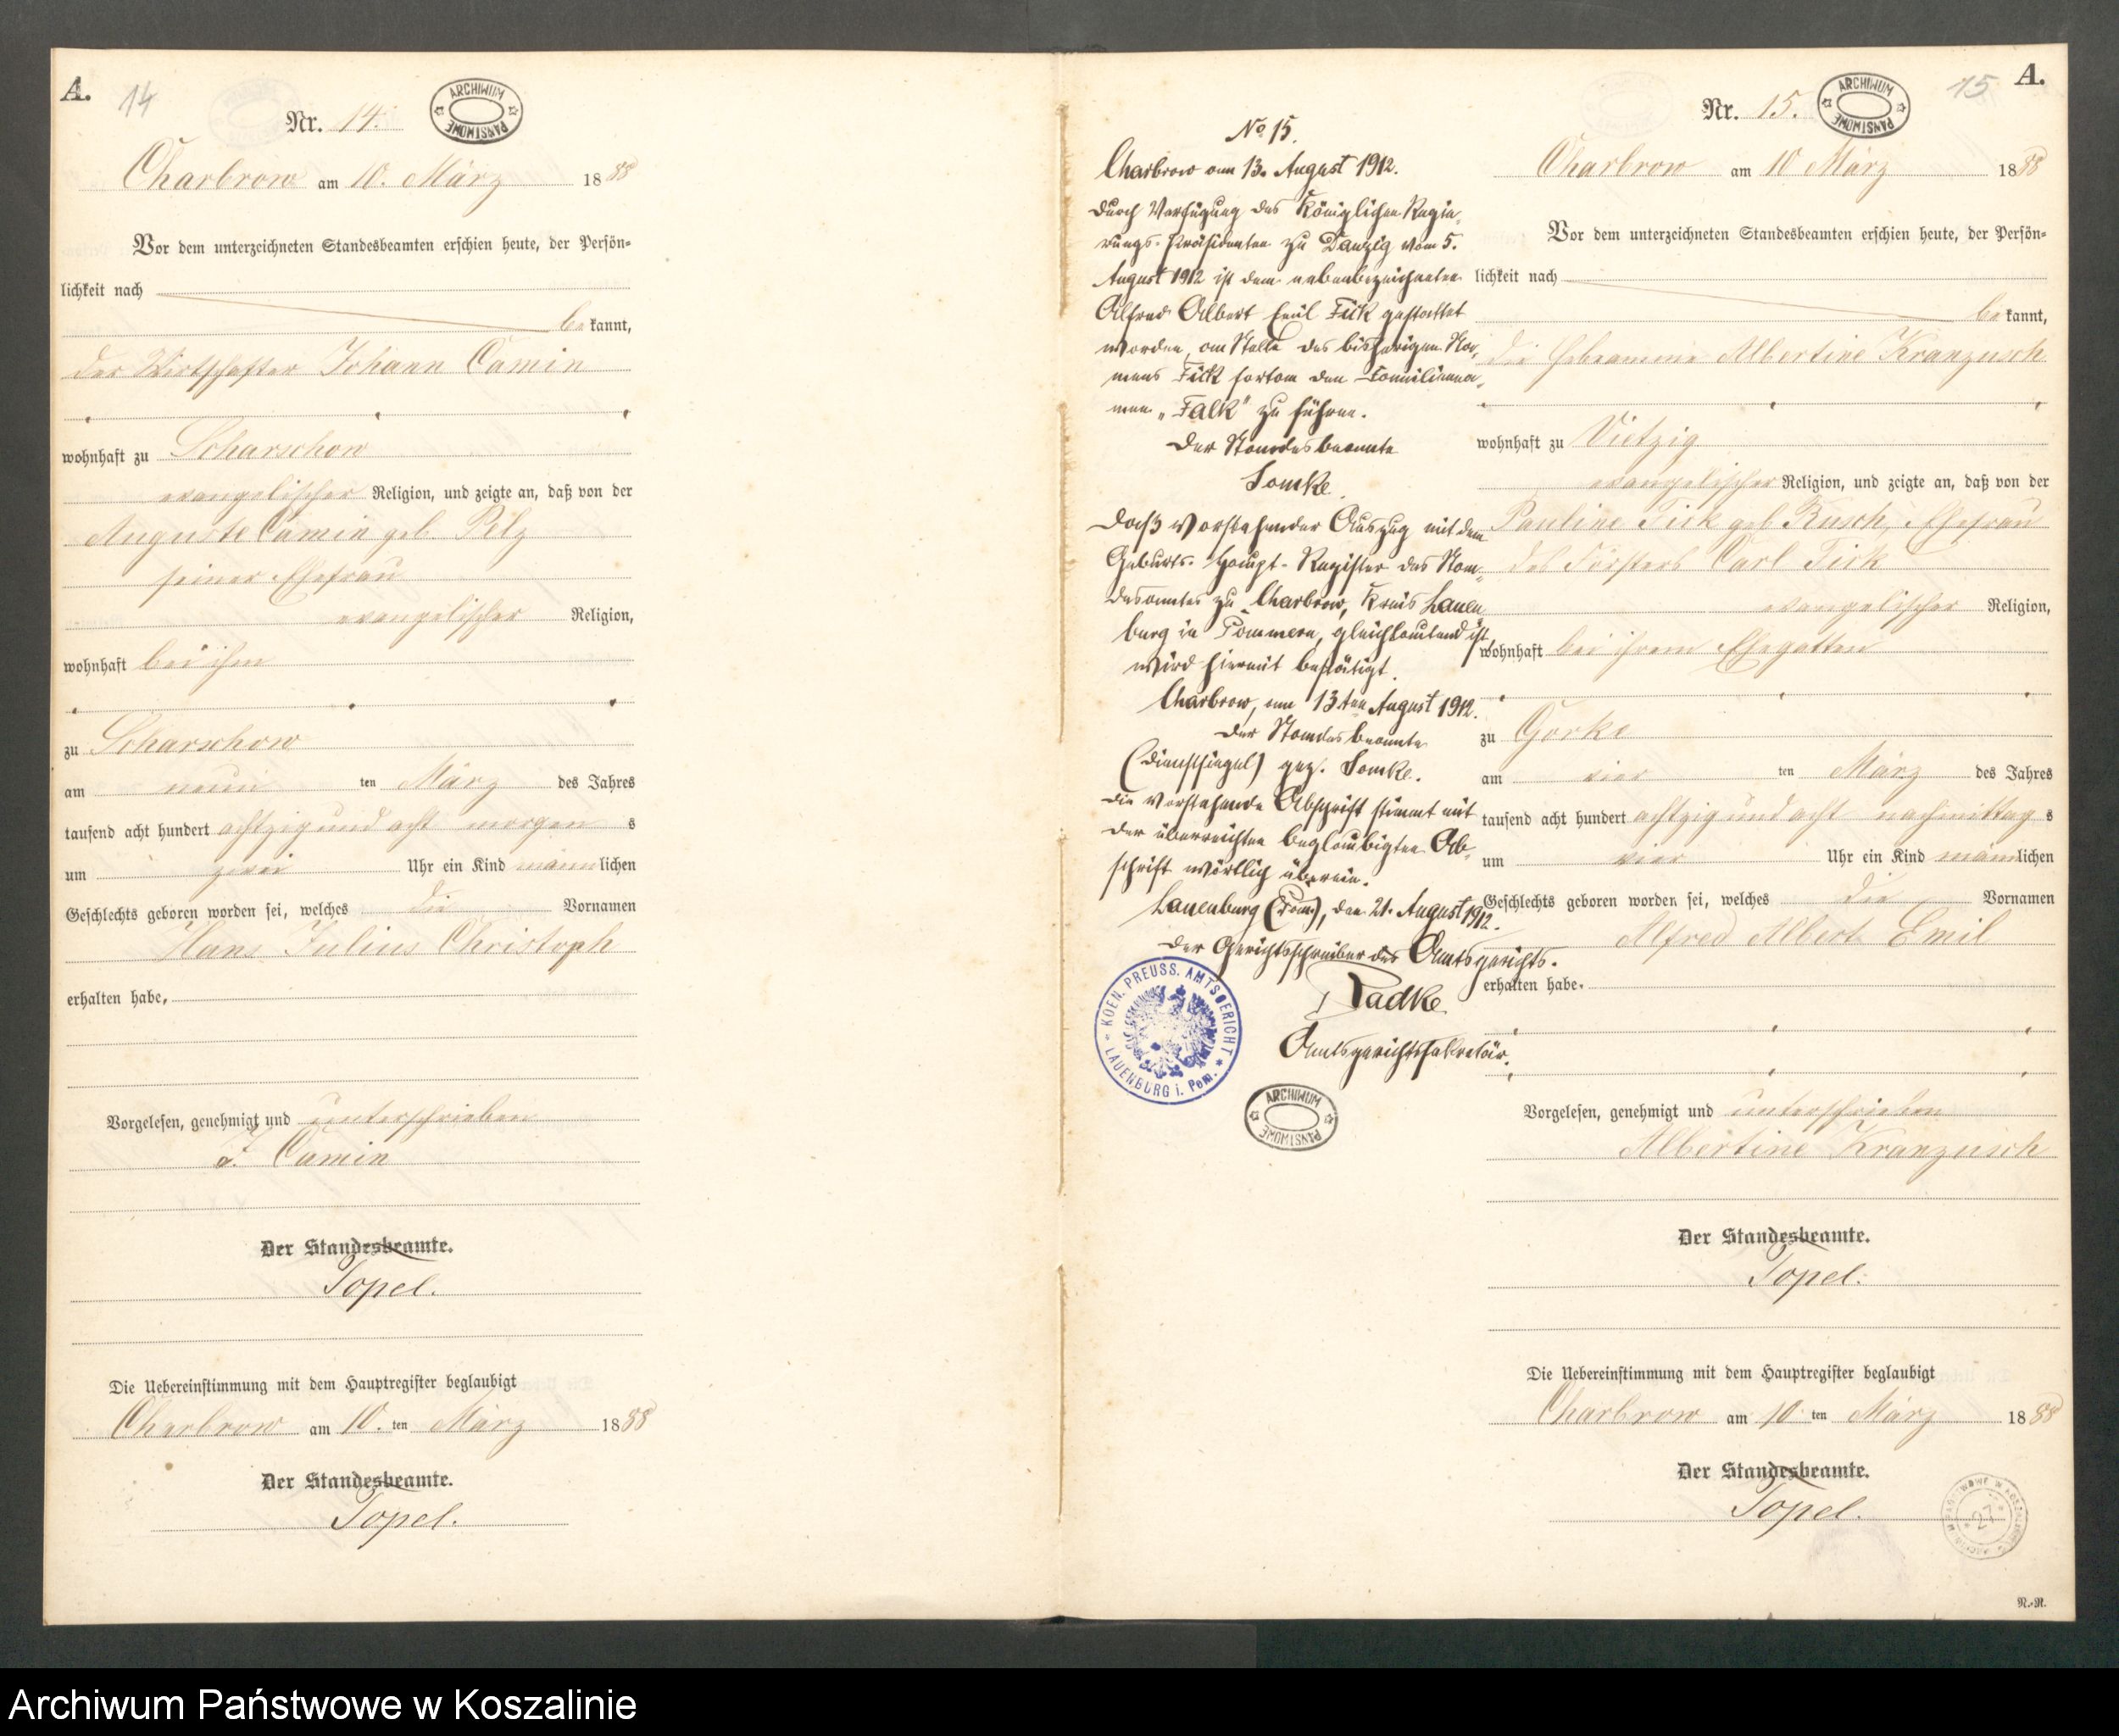 A. 14
Nr. 14.
ARCHIWUM PAŃSTWOWE
Charbrow am 10. März 1888
Vor dem unterzeichneten Standesbeamten erschien heute, der Persön-
lichkeit nach
bekannt,
der Wirtschafter Johann Camin
wohnhaft zu Scharschow
evangelischer Religion, und zeigte an, daß von der
Auguste Camin geb. Pelz
seiner Ehefrau
evangelischer Religion,
wohnhaft bei ihm
zu Scharschow
am neun ten März des Jahres
tausend acht hundert achtzig und acht morgens
um zwei Uhr ein Kind männlichen
Geschlechts geboren worden sei, welches die Vornamen
Hans Julius Christoph
erhalten habe,
Vorgelesen, genehmigt und unterschrieben
J. Camin
Der Standesbeamte.
Topel.
Die Uebereinstimmung mit dem Hauptregister beglaubigt
Charbrow am 10. ten März 1888
Der Standesbeamte.
Topel.
No 15.
Charbrow am 13. August 1912.
Durch Verfügung des Königlichen Regie-
rungs-Präsidenten zu Danzig vom 5.
August 1912 ist dem nebenbezeichneten
Alfred Albert Emil Fick gestattet
worden, an Stelle des bisherigen Na-
mens Fick fortan den Familienna-
men „Falk" zu führen.
Der Standesbeamte
Daß vorstehender Auszug mit dem
Geburts-Haupt-Register des Stan-
desamtes zu Charbrow, Kreis Lauen-
burg in Pommern, gleichlautend ist,
wird hiermit bestätigt.
Charbrow, am 13ten August 1912.
Der Standesbeamte
(Dienstsiegel) gez.
Die vorstehende Abschrift stimmt mit
der überreichten beglaubigten Ab-
schrift wörtlich überein.
Lauenburg (Pom), den 21. August 1912.
Der Gerichtsschreiber des Amtsgerichts.
Radke
Amtsgerichtssekretär.
KOEN. PREUSS. AMTSGERICHT * LAUENBURG i. Pom. *
ARCHIWUM PAŃSTWOWE
15 A.
Nr. 15.
ARCHIWUM PAŃSTWOWE
Charbrow am 10 März 1888
Vor dem unterzeichneten Standesbeamten erschien heute, der Persön-
lichkeit nach
bekannt,
die Hebeamme Albertine Kranzusch
wohnhaft zu Vietzig
evangelischer Religion, und zeigte an, daß von der
Pauline Fick geb. Rusch, Ehefrau
des Försters Carl Fick
evangelischer Religion,
wohnhaft bei ihrem Ehegatten
zu Gorke
am vier ten März des Jahres
tausend acht hundert achtzig und acht nachmittags
um vier Uhr ein Kind männlichen
Geschlechts geboren worden sei, welches die Vornamen
Alfred Albert Emil
erhalten habe.
Vorgelesen, genehmigt und unterschrieben
Albertine Kranzusch
Der Standesbeamte.
Topel.
Die Uebereinstimmung mit dem Hauptregister beglaubigt
Charbrow am 10 ten März 1888
Der Standesbeamte.
Topel.
27
R.-R.
Archiwum Państwowe w Koszalinie